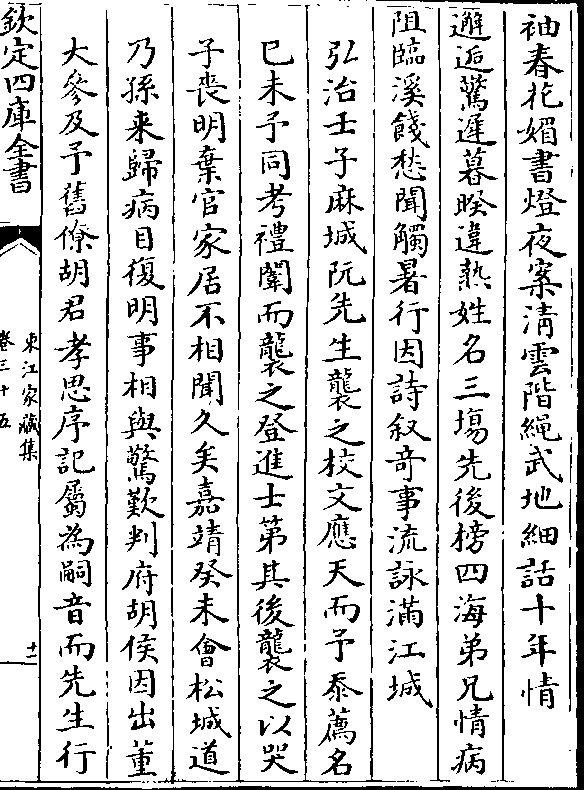 袖春花媚書燈夜案清雲階繩武地細話十年情
邂逅驚遲暮暌違熱姓名三塲先後榜四海弟兄情病
阻臨溪餞愁聞觸暑行因詩叙竒事流詠滿江城
弘治壬子麻城阮先生襲之校文應天而予忝薦名
已未予同考禮闈而襲之登進士第其後襲之以哭
子喪明棄官家居不相聞久矣嘉靖癸未會松城道
乃孫来歸病目復明事相與驚歎判府胡侯因出董
大參及予舊僚胡君孝思序記屬為嗣音而先生行
欽定四庫全書
東江家藏集
卷三十五
十一